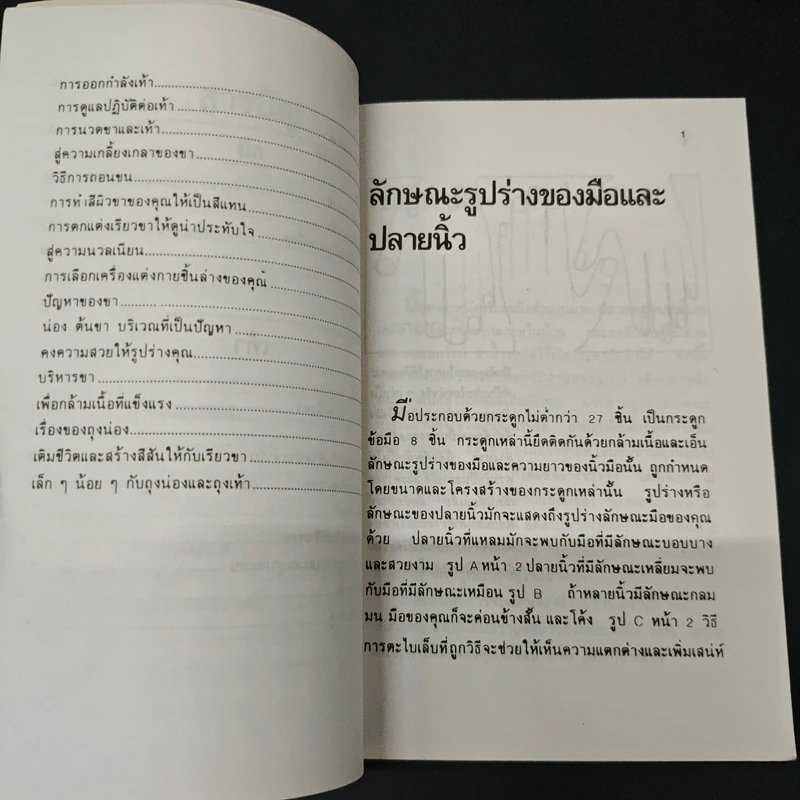 การออกกำลังเท้า
การดูแลปฏิบัติต่อเท้า
การนวดขาและเท้า
สู่ความเกลี้ยงเกลาของขา
วิธีการถอนขน
การทำสีผิวขาของคุณให้เป็นสีแทน
การตกแต่งเรียวขาให้ดูน่าประทับใจ
สู่ความนวลเนียน
การเลือกเครื่องแต่งกายชิ้นล่างของคุณ
ปัญหาของขา
น่อง ต้นขา บริเวณที่เป็นปัญหา
คงความสวยให้รูปร่างคุณ
บริหารขา
เพื่อกล้ามเนื้อที่แข็งแรง
เรื่องของถุงน่อง
เติมชีวิตและสร้างสีสันให้กับเรียวขา
เล็ก ๆ น้อย ๆ กับถุงน่องและถุงเท้า
1
ลักษณะรูปร่างของมือและ
ปลายนิ้ว
มือประกอบด้วยกระดูกไม่ต่ำกว่า 27 ชิ้น เป็นกระดูก
ข้อมือ 8 ชิ้น กระดูกเหล่านี้ยึดติดกันด้วยกล้ามเนื้อและเอ็น
ลักษณะรูปร่างของมือและความยาวของนิ้วมือนั้น ถูกกำหนด
โดยขนาดและโครงสร้างของกระดูกเหล่านั้น รูปร่างหรือ
ลักษณะของปลายนิ้วมักจะแสดงถึงรูปร่างลักษณะมือของคุณ
ด้วย ปลายนิ้วที่แหลมมักจะพบกับมือที่มีลักษณะบอบบาง
และสวยงาม รูป A หน้า 2 ปลายนิ้วที่มีลักษณะเหลี่ยมจะพบ
กับมือที่มีลักษณะเหมือน รูป B ถ้าหลายนิ้วมีลักษณะกลม
มน มือของคุณก็จะค่อนข้างสั้น และโค้ง รูป C หน้า 2 วิธี
การตะไบเล็บที่ถูกวิธีจะช่วยให้เห็นความแตกต่างและเพิ่มเสน่ห์